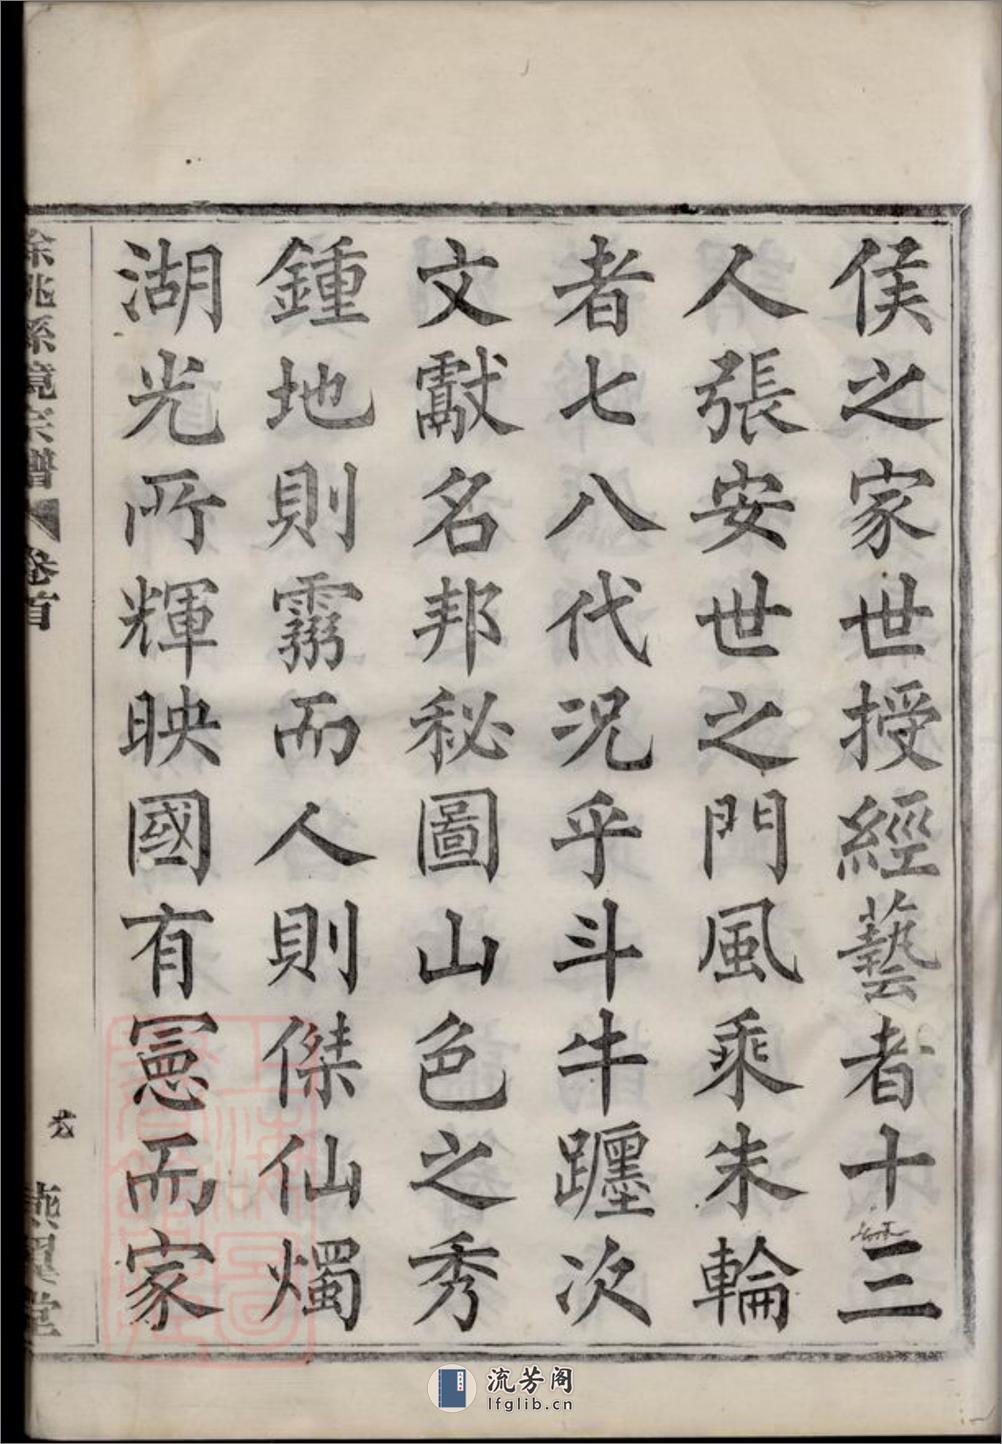 侯之家世授經藝者十三
人張安世之門風乘朱輪
者七八代況乎斗牛躔次
文獻名邦秘圖山色之秀
鍾地則靈而人則傑仙燭
湖光所輝映國有憲而家
餘姚孫境宗譜 卷首
燕翼堂
流芳阁
lfglib.cn